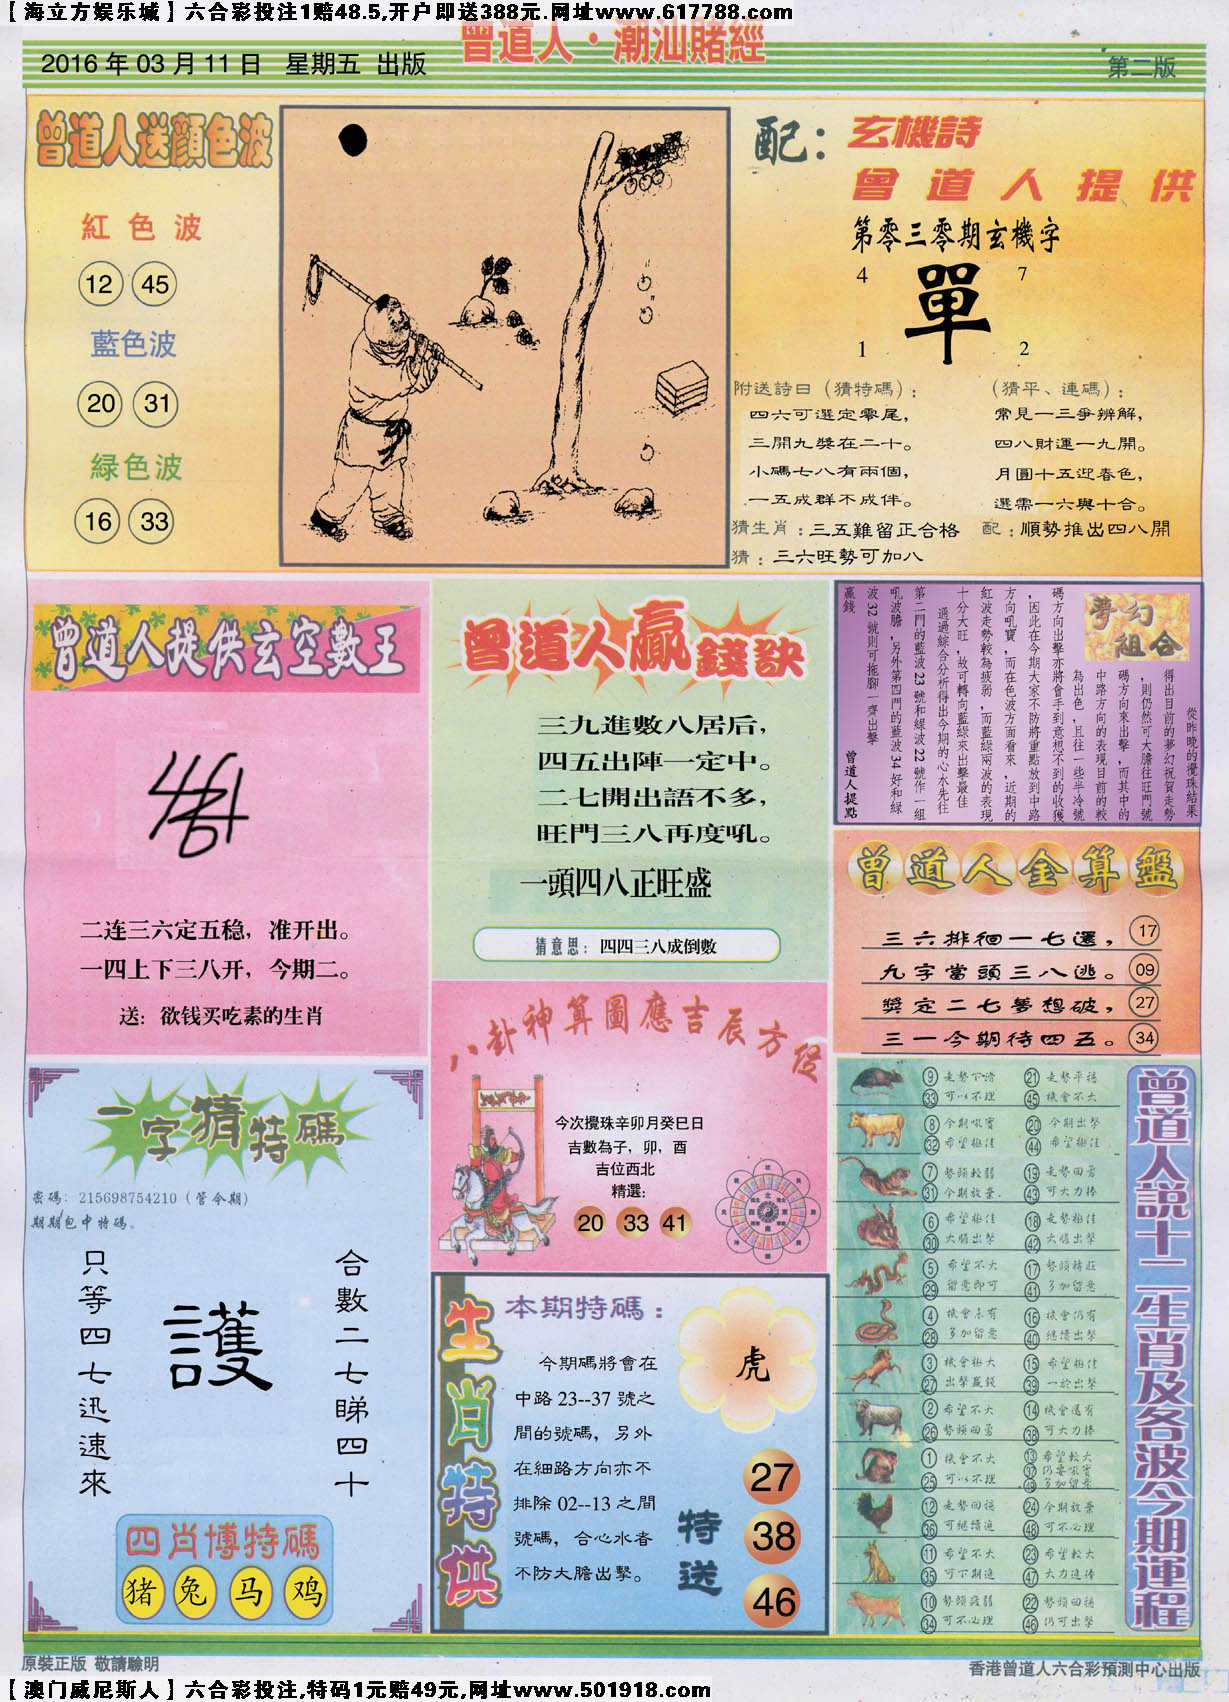 【海立方娱乐城】六合彩投注1赔48.5,开户即送388元.网址www.617788.com
曾道人·潮汕賭經
2016年03月11日 星期五 出版
第二版
曾道人送顔色波
紅色波
12 45
藍色波
20 31
緑色波
16 33
配：玄機詩
曾道人提供
第零三零期玄機字
4 7
單
1 2
附送詩曰（猜特碼）：
四六可選定零尾，
三開九獎在二十。
小碼七八有兩個，
一五成群不成伴。
（猜平、連碼）：
常見一三爭辨解，
四八財運一九開。
月圓十五迎春色，
選需一六與十合。
猜生肖：三五難留正合格
配：順勢推出四八開
猜：三六旺勢可加八
曾道人提供玄空數王
二连三六定五稳，准开出。
一四上下三八开，今期二。
送：欲钱买吃素的生肖
曾道人贏錢訣
三九進數八居后，
四五出陣一定中。
二七開出語不多，
旺門三八再度吼。
一頭四八正旺盛
猜意思：四四三八成倒數
夢幻
組合
從昨晚的攪珠結果
得出目前的夢幻祝賀走勢
，則仍然可大膽往旺門號
碼方向來出擊，而其中的
中路方向的表現目前的較
為出色，且往一些半冷號
碼方向出擊亦將會手到意想不到的收獲
，因此在今期大家不防將重點放到中路
方向吼寶，而在色波方面看來，近期的
紅波走勢較為疲弱，而藍緑兩波的表現
十分大旺，故可轉向藍緑來出擊最佳
通過綜合分析得出今期的心水先往
第二門的藍波23號和緑波22號作一組
吼波膽，另外第四門的藍波34好和緑
波32號則可拖腳一齊出擊
贏錢
曾道人提點
曾道人金算盤
三六排徊一七選， 17
九字當頭三八逃。 09
獎定二七夢想破， 27
三一今期待四五。 34
八卦神算圖應吉辰方位
今次攪珠辛卯月癸巳日
吉數為子，卯，酉
吉位西北
精選：
20 33 41
一字猜特碼
密碼：215698754210（管今期）
期期包中特碼。
只等四七迅速來
護
合數二七睇四十
四肖博特碼
猪 兔 马 鸡
生肖特供
本期特碼：
今期碼將會在
中路23--37號之
間的號碼，另外
在細路方向亦不
排除02--13之間
號碼，合心水者
不防大膽出擊。
虎
特送
27
38
46
曾道人說十二生肖及各波今期運程
⑨ 走勢下滑 ㉑ 走勢平穩
㉝ 可以不理 ㊺ 機會不大
⑧ 今期吼寶 ⑳ 今期出擊
㉜ 希望極佳 ㊹ 希望極佳
⑦ 勢頭較弱 ⑲ 走勢回勇
㉛ 今期放棄 ㊸ 可大力捧
⑥ 希望極佳 ⑱ 走勢極佳
㉚ 大膽出擊 ㊷ 大膽出擊
⑤ 希望不大 ⑰ 勢頭精莊
㉙ 留意即可 ㊶ 多加留意
④ 機會未有 ⑯ 機會仍有
㉘ 多加留意 ㊵ 繼續出擊
③ 機會極大 ⑮ 希望極佳
㉗ 出擊贏錢 ㊴ 一於出擊
② 希望不大 ⑭ 機會還有
㉖ 勢頭回勇 ㊳ 可大力捧
① 機會不大 ⑬ 希望較大
㉕ 可以不理 ㊲ 仍要吼實
㊾ 多加留意
⑫ 走勢回穩 ㉔ 今期放棄
㊱ 可繼續追 ㊽ 可不必理
⑪ 希望不大 ㉓ 希望較大
㉟ 可下期追 ㊼ 大力追捧
⑩ 勢頭疲弱 ㉒ 勢頭回穩
㉞ 可不必理 ㊻ 仍可出擊
原裝正版 敬請驗明
香港曾道人六合彩預測中心出版
【澳门威尼斯人】六合彩投注,特码1元赔49元,网址www.501918.com